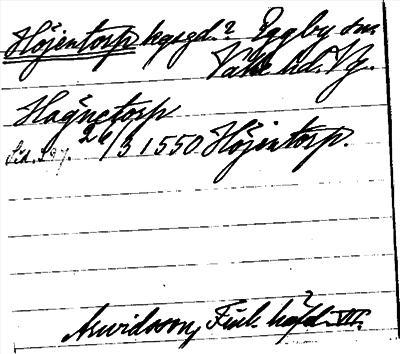 Höjentorp kgsgd.? Eggby sn.
Valle hd. Vg.
Hagnetorp
26/3 1550 Höjentorp.
Arwidsson, Finl. häfd. VII.